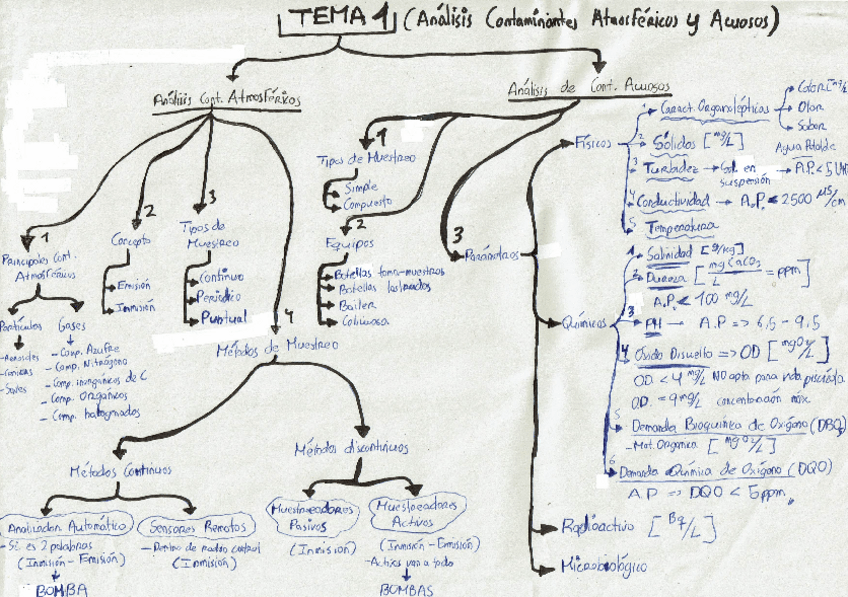 TEMA 1 (Análisis Contaminantes Atmosféricos y Acuosos)
Análisis Cont. Atmosféricos
1
Principales Cont.
Atmosféricos
Partículas
- Aerosoles
Gases
- Comp. Azufre
- Comp. Nitrógeno
- Comp. inorgánicos de C
- Comp. Orgánicos
- Comp. halogenados
2
Concepto
Emisión
Inmisión
3
Tipos de
Muestreo
Continuo
Periódico
Puntual
4
Métodos de Muestreo
Métodos Continuos
Analizador Automático
- Si es 2 palabras
(Inmisión - Emisión)
BOMBA
Sensores Remotos
- Dentro de radio control
(Inmisión)
Métodos discontinuos
Muestreadores
Pasivos
(Inmisión)
Muestreadores
Activos
(Inmisión - Emisión)
- Activos van a todo
BOMBAS
Análisis de Cont. Acuosos
1
Tipos de Muestreo
Simple
Compuesto
2
Equipos
Botellas toma-muestras
Botellas lastradas
Bailer
Coliwasa
3
Parámetros
Físicos
1 Caract. Organolépticas
Color [mg/L]
Olor
Sabor
2 Sólidos [mg/L]
Agua Potable
3 Turbidez → Sol. en suspensión → A.P. < 5 UNT
4 Conductividad → A.P. < 2500 μS/cm
5 Temperatura
Químicos
1 Salinidad [g/kg]
2 Dureza [mg CaCO3/L = ppm]
A.P. < 100 mg/L
3 PH — A.P => 6,5 - 9,5
4 Oxido Disuelto => OD [mg O2/L]
OD < 4 mg/L NO apta para vida piscícola
O.D. = 9 mg/L concentración máx
5 Demanda Bioquímica de Oxígeno (DBO)
- Mat. Orgánica [mg O2/L]
6 Demanda Química de Oxígeno (DQO)
A.P => DQO < 5 ppm
Radioactivo [Bq/L]
Microbiológico